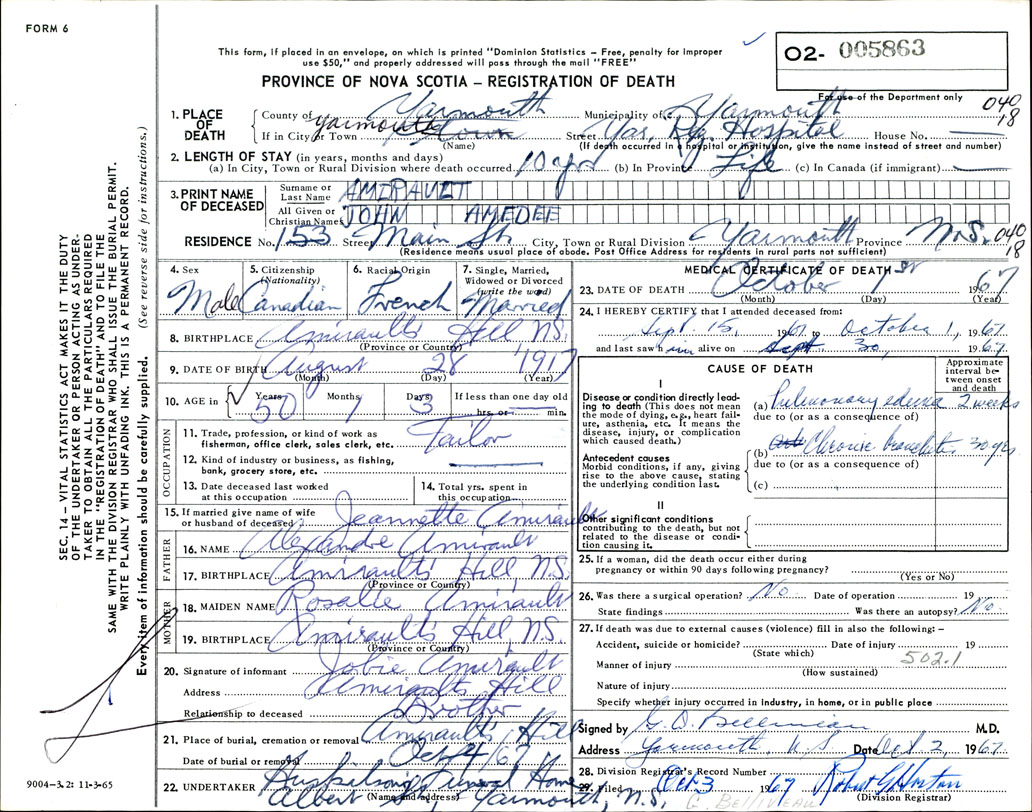 FORM 6
This form, if placed in an envelope, on which is printed "Dominion Statistics – Free, penalty for improper
use $50," and properly addressed will pass through the mail "FREE"
O2- 005863
For use of the Department only
PROVINCE OF NOVA SCOTIA – REGISTRATION OF DEATH
040
18
1. PLACE OF DEATH
County of Yarmouth Municipality of Yarmouth
If in City or Town Yarmouth Town Street Yar. Reg. Hospital House No.
(Name) (If death occurred in hospital or institution, give the name instead of street and number)
2. LENGTH OF STAY (in years, months and days)
(a) In City, Town or Rural Division where death occurred 10 yrs (b) In Province Life (c) In Canada (if immigrant)
3. PRINT NAME OF DECEASED
Surname or Last Name AMIRAULT
All Given or Christian Names JOHN AMEDEE
RESIDENCE No. 153 Street Main St. City, Town or Rural Division Yarmouth Province N.S. 040
18
(Residence means usual place of abode. Post Office Address for residents in rural parts not sufficient)
4. Sex
Male
5. Citizenship
(Nationality)
Canadian
6. Racial Origin
French
7. Single, Married,
Widowed or Divorced
(write the word)
Married
8. BIRTHPLACE Amirault's Hill N.S.
(Province or Country)
9. DATE OF BIRTH August 28 1917
(Month) (Day) (Year)
10. AGE in Years 50 Months 1 Days 3 If less than one day old
hrs. or min.
OCCUPATION
11. Trade, profession, or kind of work as
fisherman, office clerk, sales clerk, etc. Tailor
12. Kind of industry or business, as fishing,
bank, grocery store, etc.
13. Date deceased last worked
at this occupation
14. Total yrs. spent in
this occupation
15. If married give name of wife
or husband of deceased Jeannette Amirault
FATHER
16. NAME Alexandre Amirault
17. BIRTHPLACE Amirault's Hill, N.S.
(Province or Country)
MOTHER
18. MAIDEN NAME Rosalie Amirault
19. BIRTHPLACE Amirault's Hill, N.S.
(Province or Country)
20. Signature of informant Jobie Amirault
Address Amirault's Hill
Relationship to deceased Brother
21. Place of burial, cremation or removal Amirault's Hill
Date of burial or removal Oct 4/67
22. UNDERTAKER Huskilson Funeral Home
(Name and address)
Albert St. Yarmouth, N.S.
MEDICAL CERTIFICATE OF DEATH
23. DATE OF DEATH October 1 st 1967
(Month) (Day) (Year)
24. I HEREBY CERTIFY that I attended deceased from
Sept 15, 1967 to October 1, 1967
and last saw him alive on Sept. 30, 1967
CAUSE OF DEATH
Approximate
interval be-
tween onset
and death
I
Disease or condition directly lead-
ing to death (This does not mean
the mode of dying, e.g., heart fail-
ure, asthenia, etc. It means the
disease, injury, or complication
which caused death.)
(a) Pulmonary edema 2 weeks
due to (or as a consequence of)
Antecedent causes
Morbid conditions, if any, giving
rise to the above cause, stating
the underlying condition last.
(b) Chronic bronchitis 30 yrs
due to (or as a consequence of)
(c)
II
Other significant conditions
contributing to the death, but not
related to the disease or condi-
tion causing it.
25. If a woman, did the death occur either during
pregnancy or within 90 days following pregnancy?
(Yes or No)
26. Was there a surgical operation? No Date of operation 19
State findings Was there an autopsy? No.
27. If death was due to external causes (violence) fill in also the following: –
Accident, suicide or homicide? Date of injury 19
(State which)
502.1
Manner of injury
(How sustained)
Nature of injury
Specify whether injury occurred in Industry, in home, or in public place
Signed by G. D. Belliveau M.D.
Address Yarmouth N.S. Date Oct 2 1967
28. Division Registrar's Record Number
29. Filed Oct 3 1967 Robert G. Horton
(Division Registrar)
G. BELLIVEAU
SEC. 14 – VITAL STATISTICS ACT MAKES IT THE DUTY
OF THE UNDERTAKER OR PERSON ACTING AS UNDER-
TAKER TO OBTAIN ALL THE PARTICULARS REQUIRED
IN THE "REGISTRATION OF DEATH" AND TO FILE THE
SAME WITH THE DIVISION REGISTRAR WHO SHALL ISSUE BURIAL PERMIT.
WRITE PLAINLY WITH UNFADING INK. THIS IS A PERMANENT RECORD.
Every item of information should be carefully supplied. (See reverse side for instructions.)
9004-3.2: 11-3-65